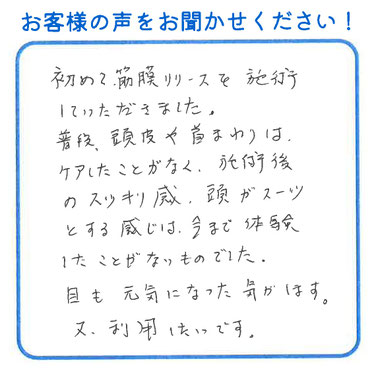 お客様の声をお聞かせください！
初めて、筋膜リリースを施術
していただきました。
普段、頭皮や首まわりは、
ケアしたことがなく、施術後
のスッキリ感、頭がスーッ
とする感じは、今まで体験
したことがないものでした。
目も元気になった気がします。
又、利用したいです。